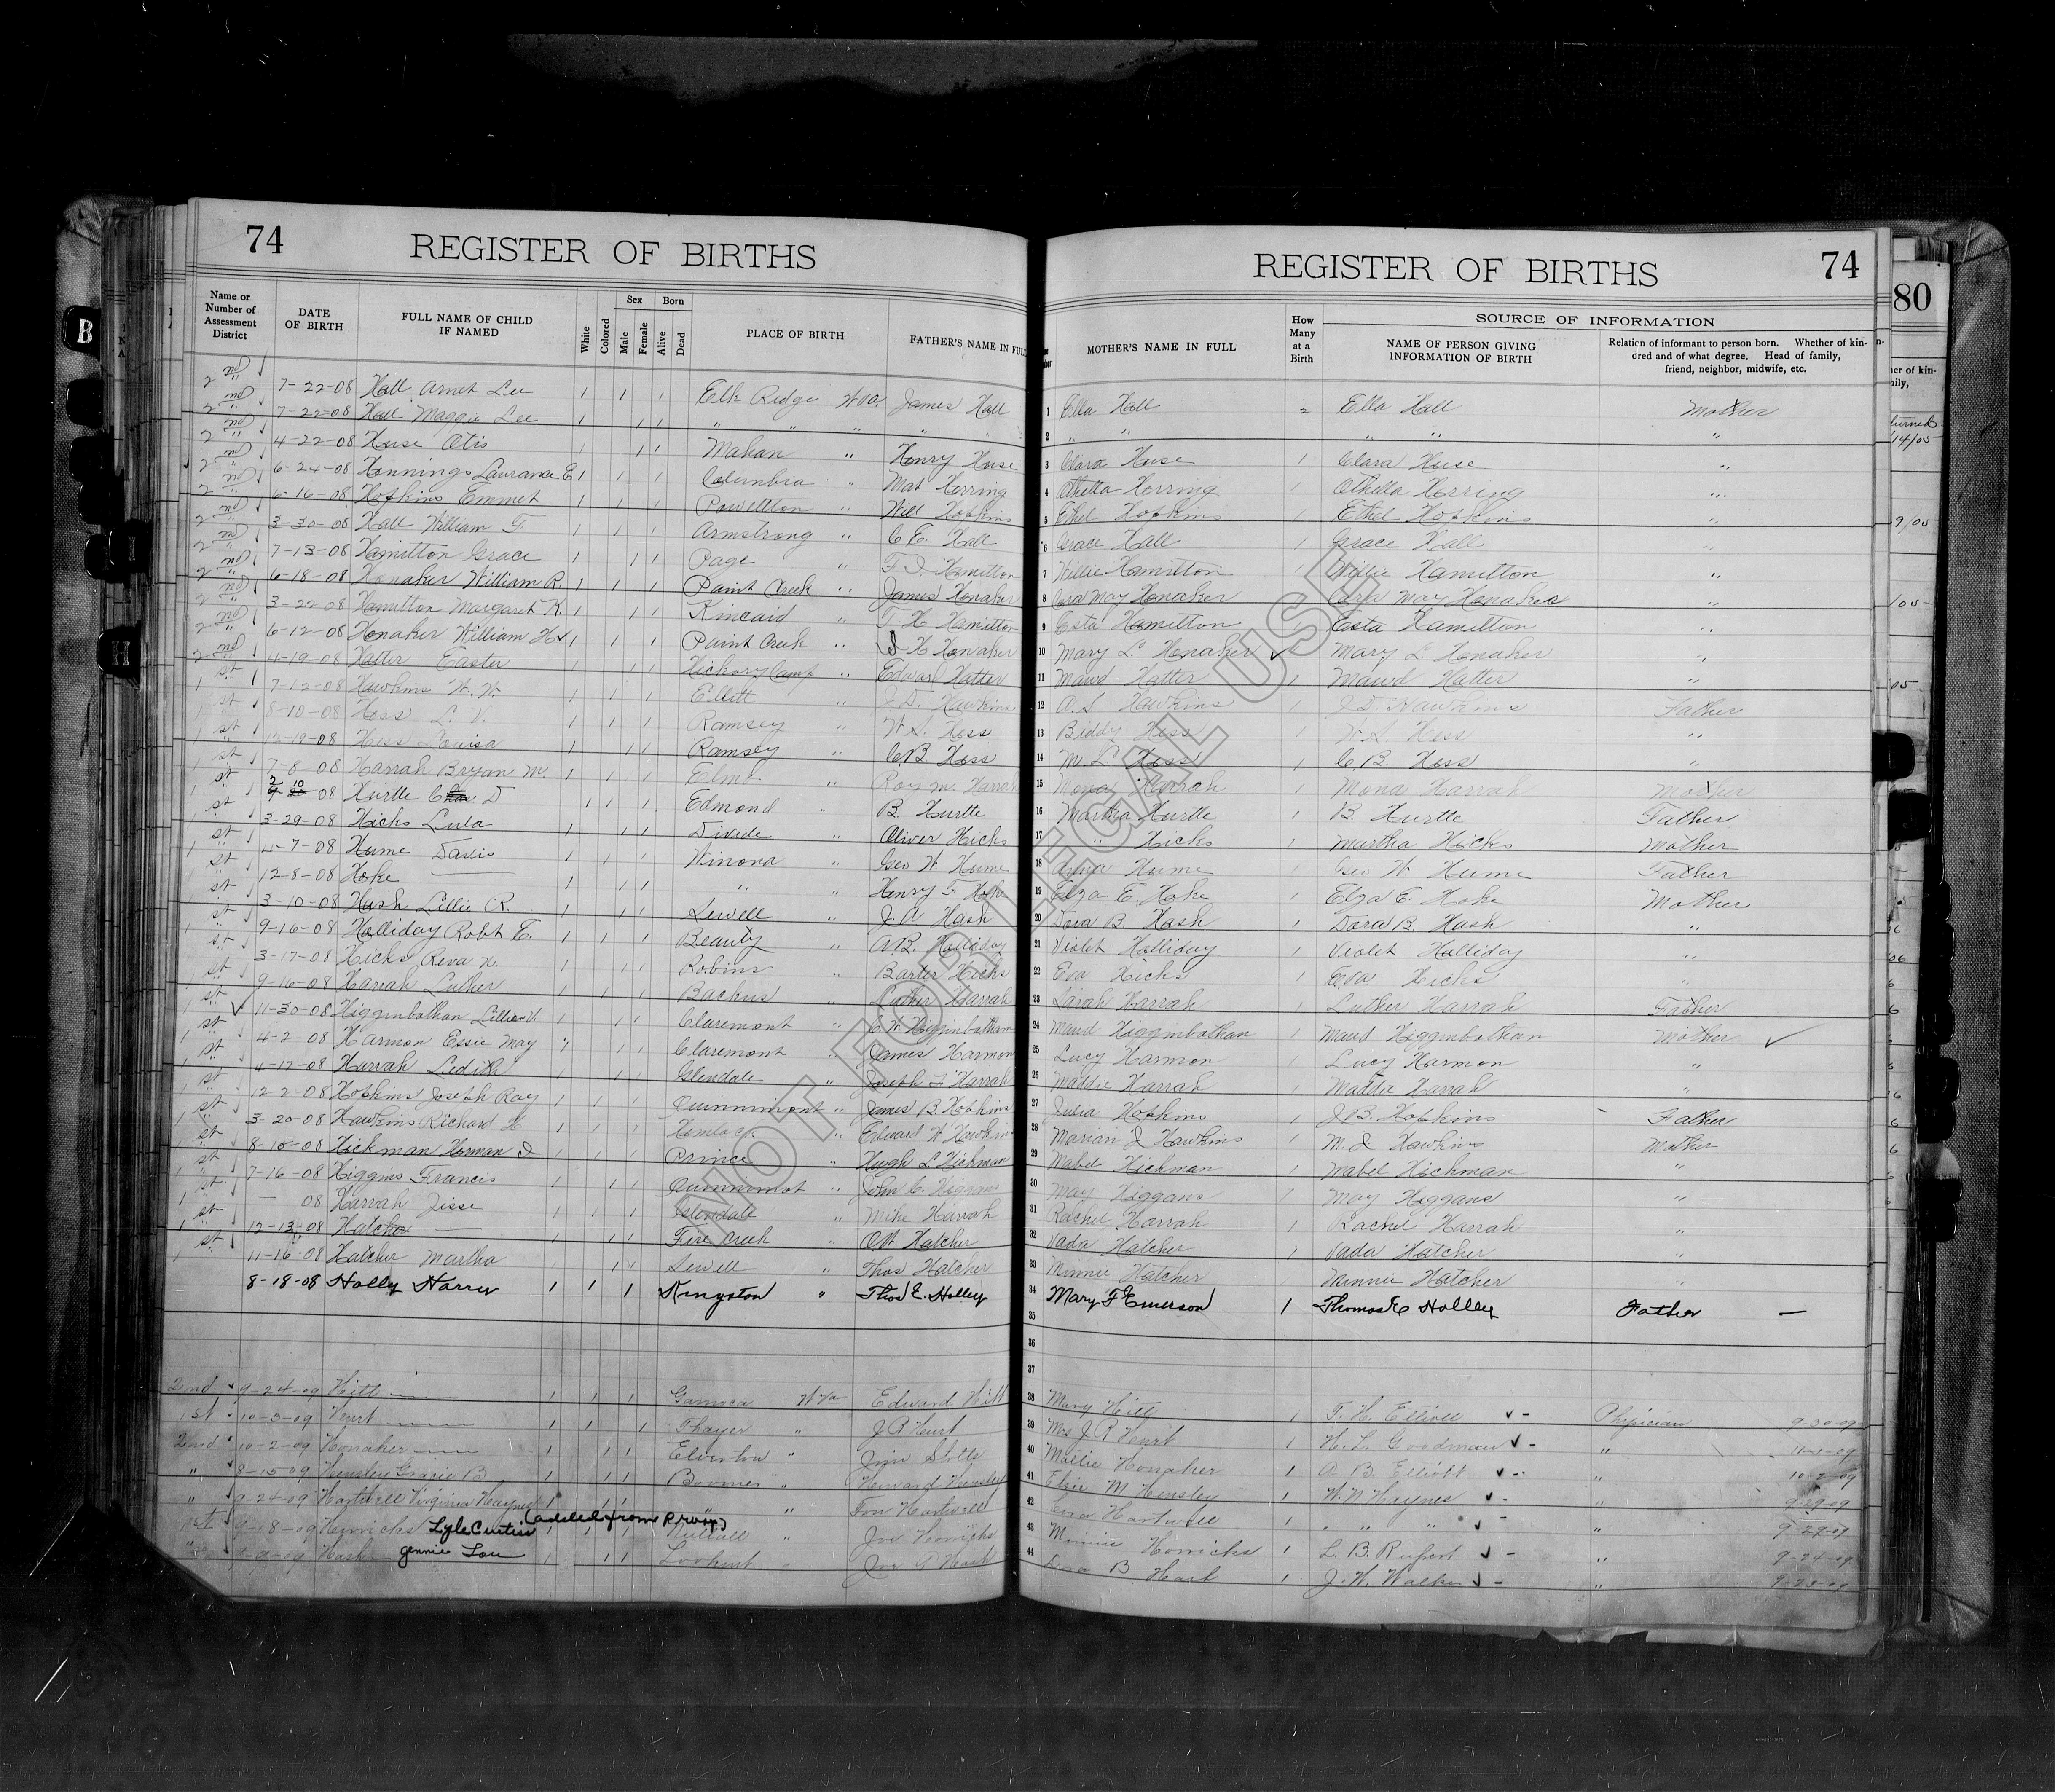 74 REGISTER OF BIRTHS
Name or Number of Assessment District | DATE OF BIRTH | FULL NAME OF CHILD IF NAMED | White | Colored | Sex Male Female | Born Alive Dead | PLACE OF BIRTH | FATHER'S NAME IN FULL
2nd 7-22-08 Hall Arnet Lee 1 1 1 Elk Ridge W Va. James Hall
2nd 7-22-08 Hall Maggie Lee 1 1 1 " " " " "
2nd 4-22-08 Huse Otis 1 1 1 Mahan " Henry Huse
2nd 6-24-08 Hennings Laurance E 1 1 1 Columbia " Mat Herring
2nd 6-16-08 Hopkins Emmet 1 1 1 Powellton " Will Hopkins
2nd 3-30-08 Hall William F. 1 1 1 Armstrong " C E. Hall
2nd 7-13-08 Hamilton Grace 1 1 1 Page " Hamilton
2nd 6-18-08 Honaker William R. 1 1 1 Paint Creek " James Honaker
2nd 3-22-08 Hamilton Margaret K. 1 1 1 Kincaid " T H Hamilton
2nd 6-12-08 Honaker William H 1 1 1 Paint Creek " H Honaker
2nd 4-19-08 Hatter Easter 1 1 Hickory Camp " Edward Hatter
1st 7-12-08 Hawkins W. W. 1 1 1 Elliott " J. D. Hawkins
1st 8-10-08 Hess L. V. 1 1 1 Ramsey " W. S. Hess
1st 12-19-08 Hess Louisa 1 1 Ramsey " C.B. Hess
1st 7-8-08 Harrah Bryan M. 1 1 1 Elmo " Roy M. Harrah
1st 2 10 08 Hurtle D 1 1 1 Edmond " B. Hurtle
1st 3-29-08 Hicks Lula 1 1 1 Divide " Oliver Hicks
1st 4-7-08 Hume Davis 1 1 1 Winona " Geo W. Hume
1st 12-8-08 Hoke — 1 1 1 " " Henry Hoke
1st 3-10-08 Hash Lillie R. 1 1 1 Sewell " J. A Hash
1st 9-16-08 Halliday Robt E. 1 1 1 Beauty " A.B. Halliday
1st 3-17-08 Hicks Reva 1 1 1 Robins " Barter Hicks
1st 9-16-08 Harrah Luther 1 1 1 Bachus " Luther Harrah
1st 11-30-08 Higginbothan 1 1 1 Claremont " Higginbothan
1st 4-2-08 Harmon Essie May 1 1 1 Claremont " James Harmon
1st 4-17-08 Harrah Ledith 1 1 1 Glendale " Joseph F Harrah
1st 12-2-08 Hopkins Joseph Ray 1 1 1 Quinnimont " James B. Hopkins
1st 3-20-08 Hawkins Richard H 1 1 1 Hemlock " Edward W Hawkins
1st 8-10-08 Hickman Herman 1 1 1 Prince " Hugh L Hickman
1st 7-16-08 Higgins Francis 1 1 1 Quinnimont " John C. Higgans
1st — 08 Harrah Jesse 1 1 1 Glendale " Mike Harrah
1st 12-13-08 Hatcher — 1 1 1 Fire Creek " Hatcher
1st 11-16-08 Hatcher Martha 1 1 Sewell " Thos Hatcher
8-18-08 Holly Harry 1 1 1 Kingston " Thos E. Holley
2nd 9-24-09 Hitt — 1 1 1 Gamoca W Va Edward Hitt
1st 10-3-09 Hurt — 1 1 1 Thayer " J R Hurt
2nd 10-2-09 Honaker — 1 1 1 Elverton " Jim Stotts
" 8-15-09 Hensley Gracie B 1 1 1 Boomer " Howard Hensley
" 9-24-09 Hartwell Virginia Haynes 1 1 1 " " Hartwell
1st 9-18-09 Henricks Lyle Curtis (added from proof) Nuttall " Joe Henricks
9-9-09 Hash Jennie Lou 1 1 1 Lookout " Hash
REGISTER OF BIRTHS 74
MOTHER'S NAME IN FULL | How Many at a Birth | SOURCE OF INFORMATION
NAME OF PERSON GIVING INFORMATION OF BIRTH | Relation of informant to person born. Whether of kindred and of what degree. Head of family, friend, neighbor, midwife, etc.
1 Ella Hall 2 Ella Hall Mother
2 " " " " "
3 Clara Huse 1 Clara Huse "
4 Othella Herring 1 Othella Herring "
5 Ethel Hopkins 1 Ethel Hopkins "
6 Grace Hall 1 Grace Hall "
7 Willie Hamilton 1 Willie Hamilton "
8 Cora May Honaker 1 Cora May Honaker "
9 Esta Hamilton 1 Esta Hamilton "
10 Mary L. Honaker Mary L. Honaker "
11 Maud Hatter 1 Maud Hatter "
12 A. S Hawkins 1 J. D. Hawkins Father
13 Biddy Hess 1 W. S. Hess "
14 M. L Hess 1 C. B. Hess "
15 Mona Harrah 1 Mona Harrah Mother
16 Martha Hurtle 1 B. Hurtle Father
17 " Hicks 1 Martha Hicks Mother
18 Anna Hume 1 Geo W Hume Father
19 Elza E. Hoke 1 Elza E. Hoke Mother
20 Dora B. Hash 1 Dora B. Hash "
21 Violet Halliday 1 Violet Halliday "
22 Eva Hicks 1 Eva Hicks "
23 Sarah Harrah 1 Luther Harrah Father
24 Maud Higginbothan 1 Maud Higginbothan Mother
25 Lucy Harmon 1 Lucy Harmon "
26 Maddie Harrah 1 Maddie Harrah "
27 Julia Hopkins 1 J.B. Hopkins Father
28 Marian J Hawkins 1 M. J. Hawkins Mother
29 Mabel Hickman 1 Mabel Hickman "
30 May Higgans 1 May Higgans "
31 Rachel Harrah 1 Rachel Harrah "
32 Vada Hatcher 1 Vada Hatcher "
33 Minnie Hatcher Minnie Hatcher "
34 Mary F Emerson 1 Thomas E Holley Father —
35
36
37
38 Mary Hitt 1 T. H. Elliott Physician 9-30-09
39 Mrs J R Hurt 1 H. L. Goodman " 11-1-09
40 Mollie Honaker 1 A B. Elliott " 10-2-09
41 Elsie M Hensley 1 W. N Haynes " 9-29-09
42 Hartwell 1 " " " " 9-29-09
43 Minnie Henricks 1 L. B. Rupert " 9-24-09
44 Dora B Hash 1 J. W. Walker " 9-23-09
80
B
H
NOT FOR LEGAL USE